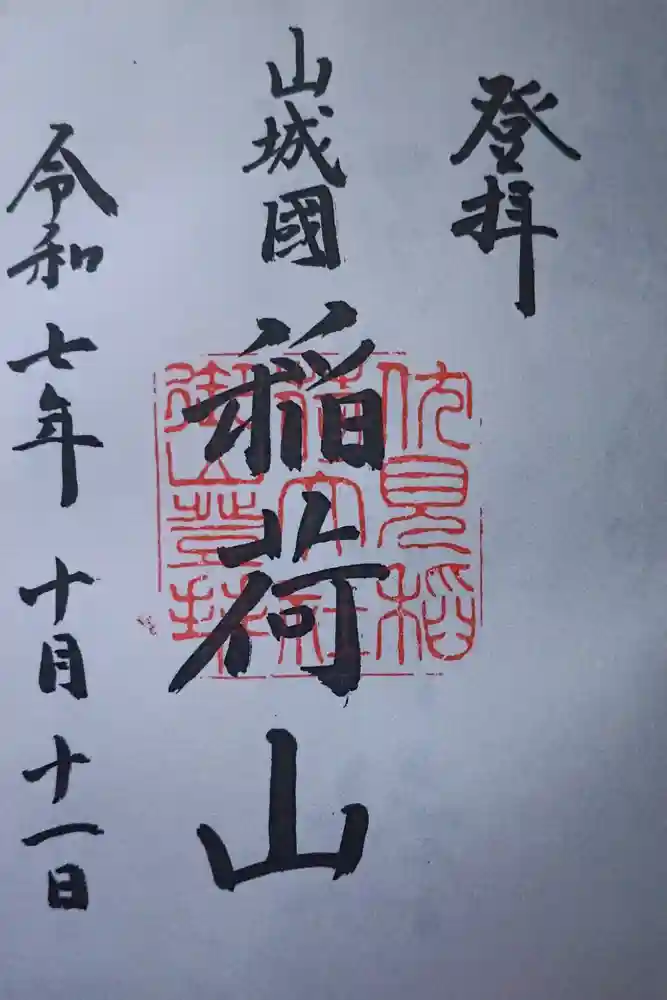 登拝
山城國
稲荷山
伏見稲
荷大社
御山登拝
令和七年十月十一日